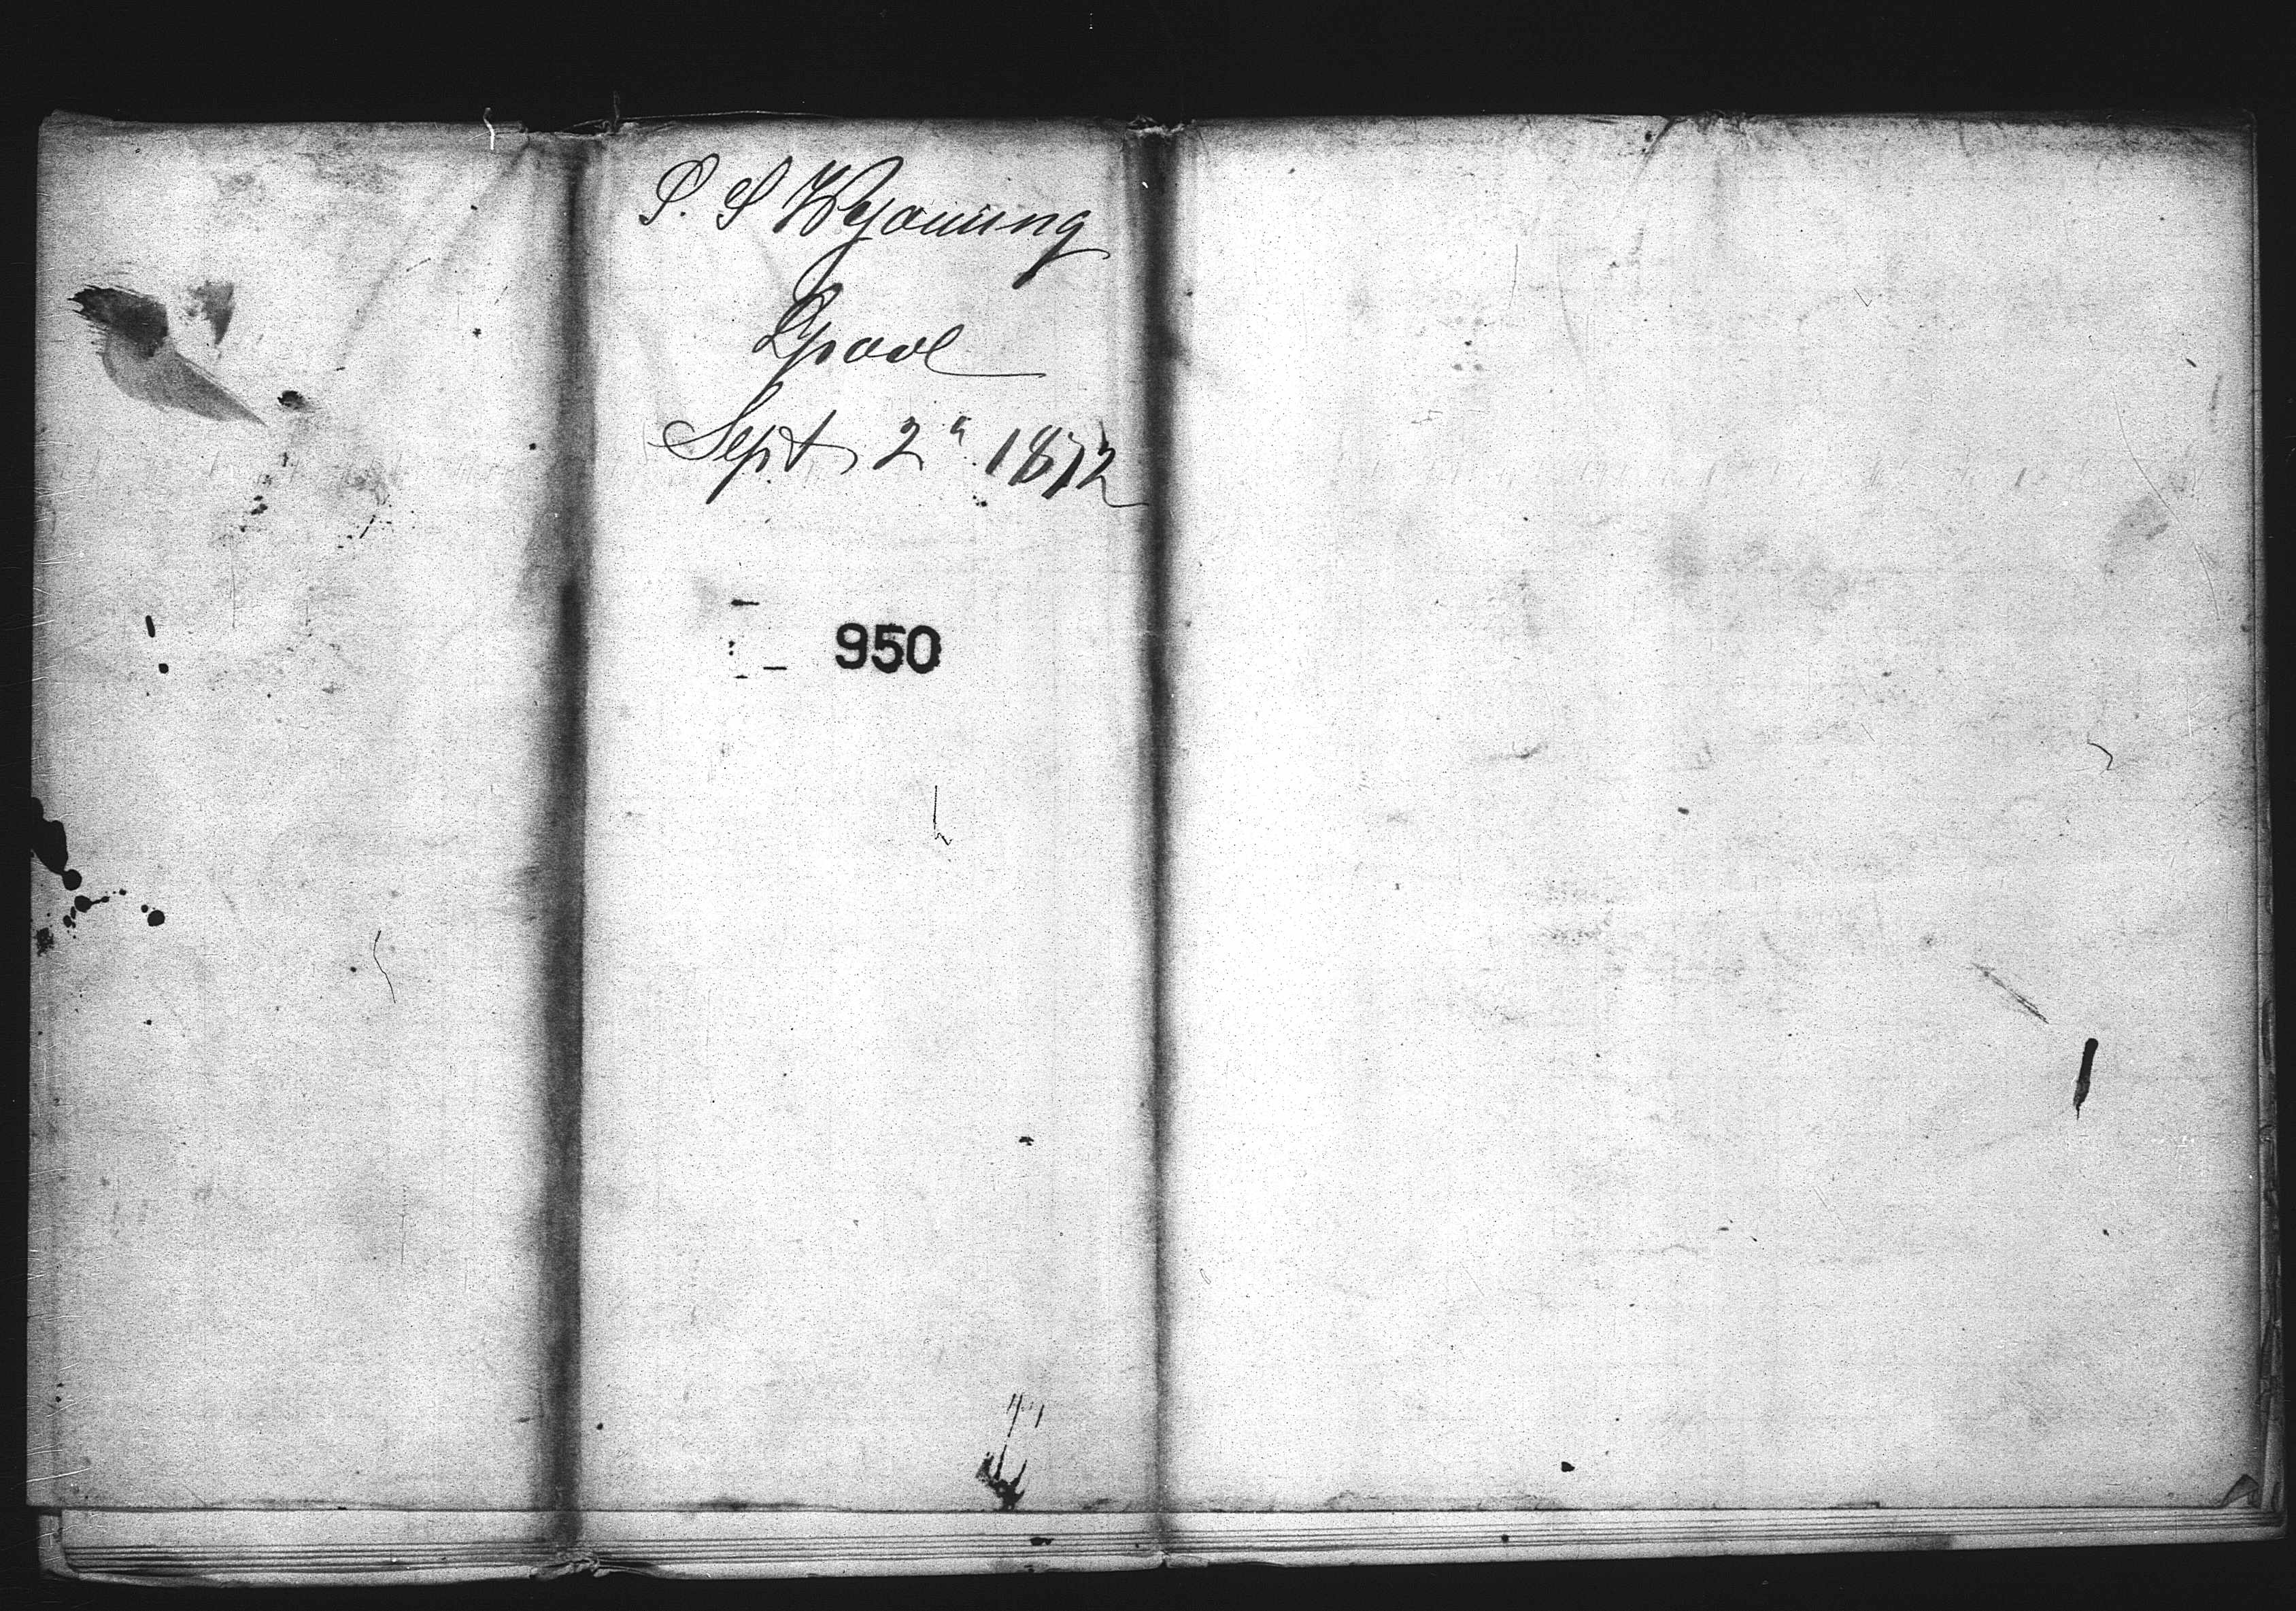 S. S Wyoming
Lpool
Sept 2d 1872
950